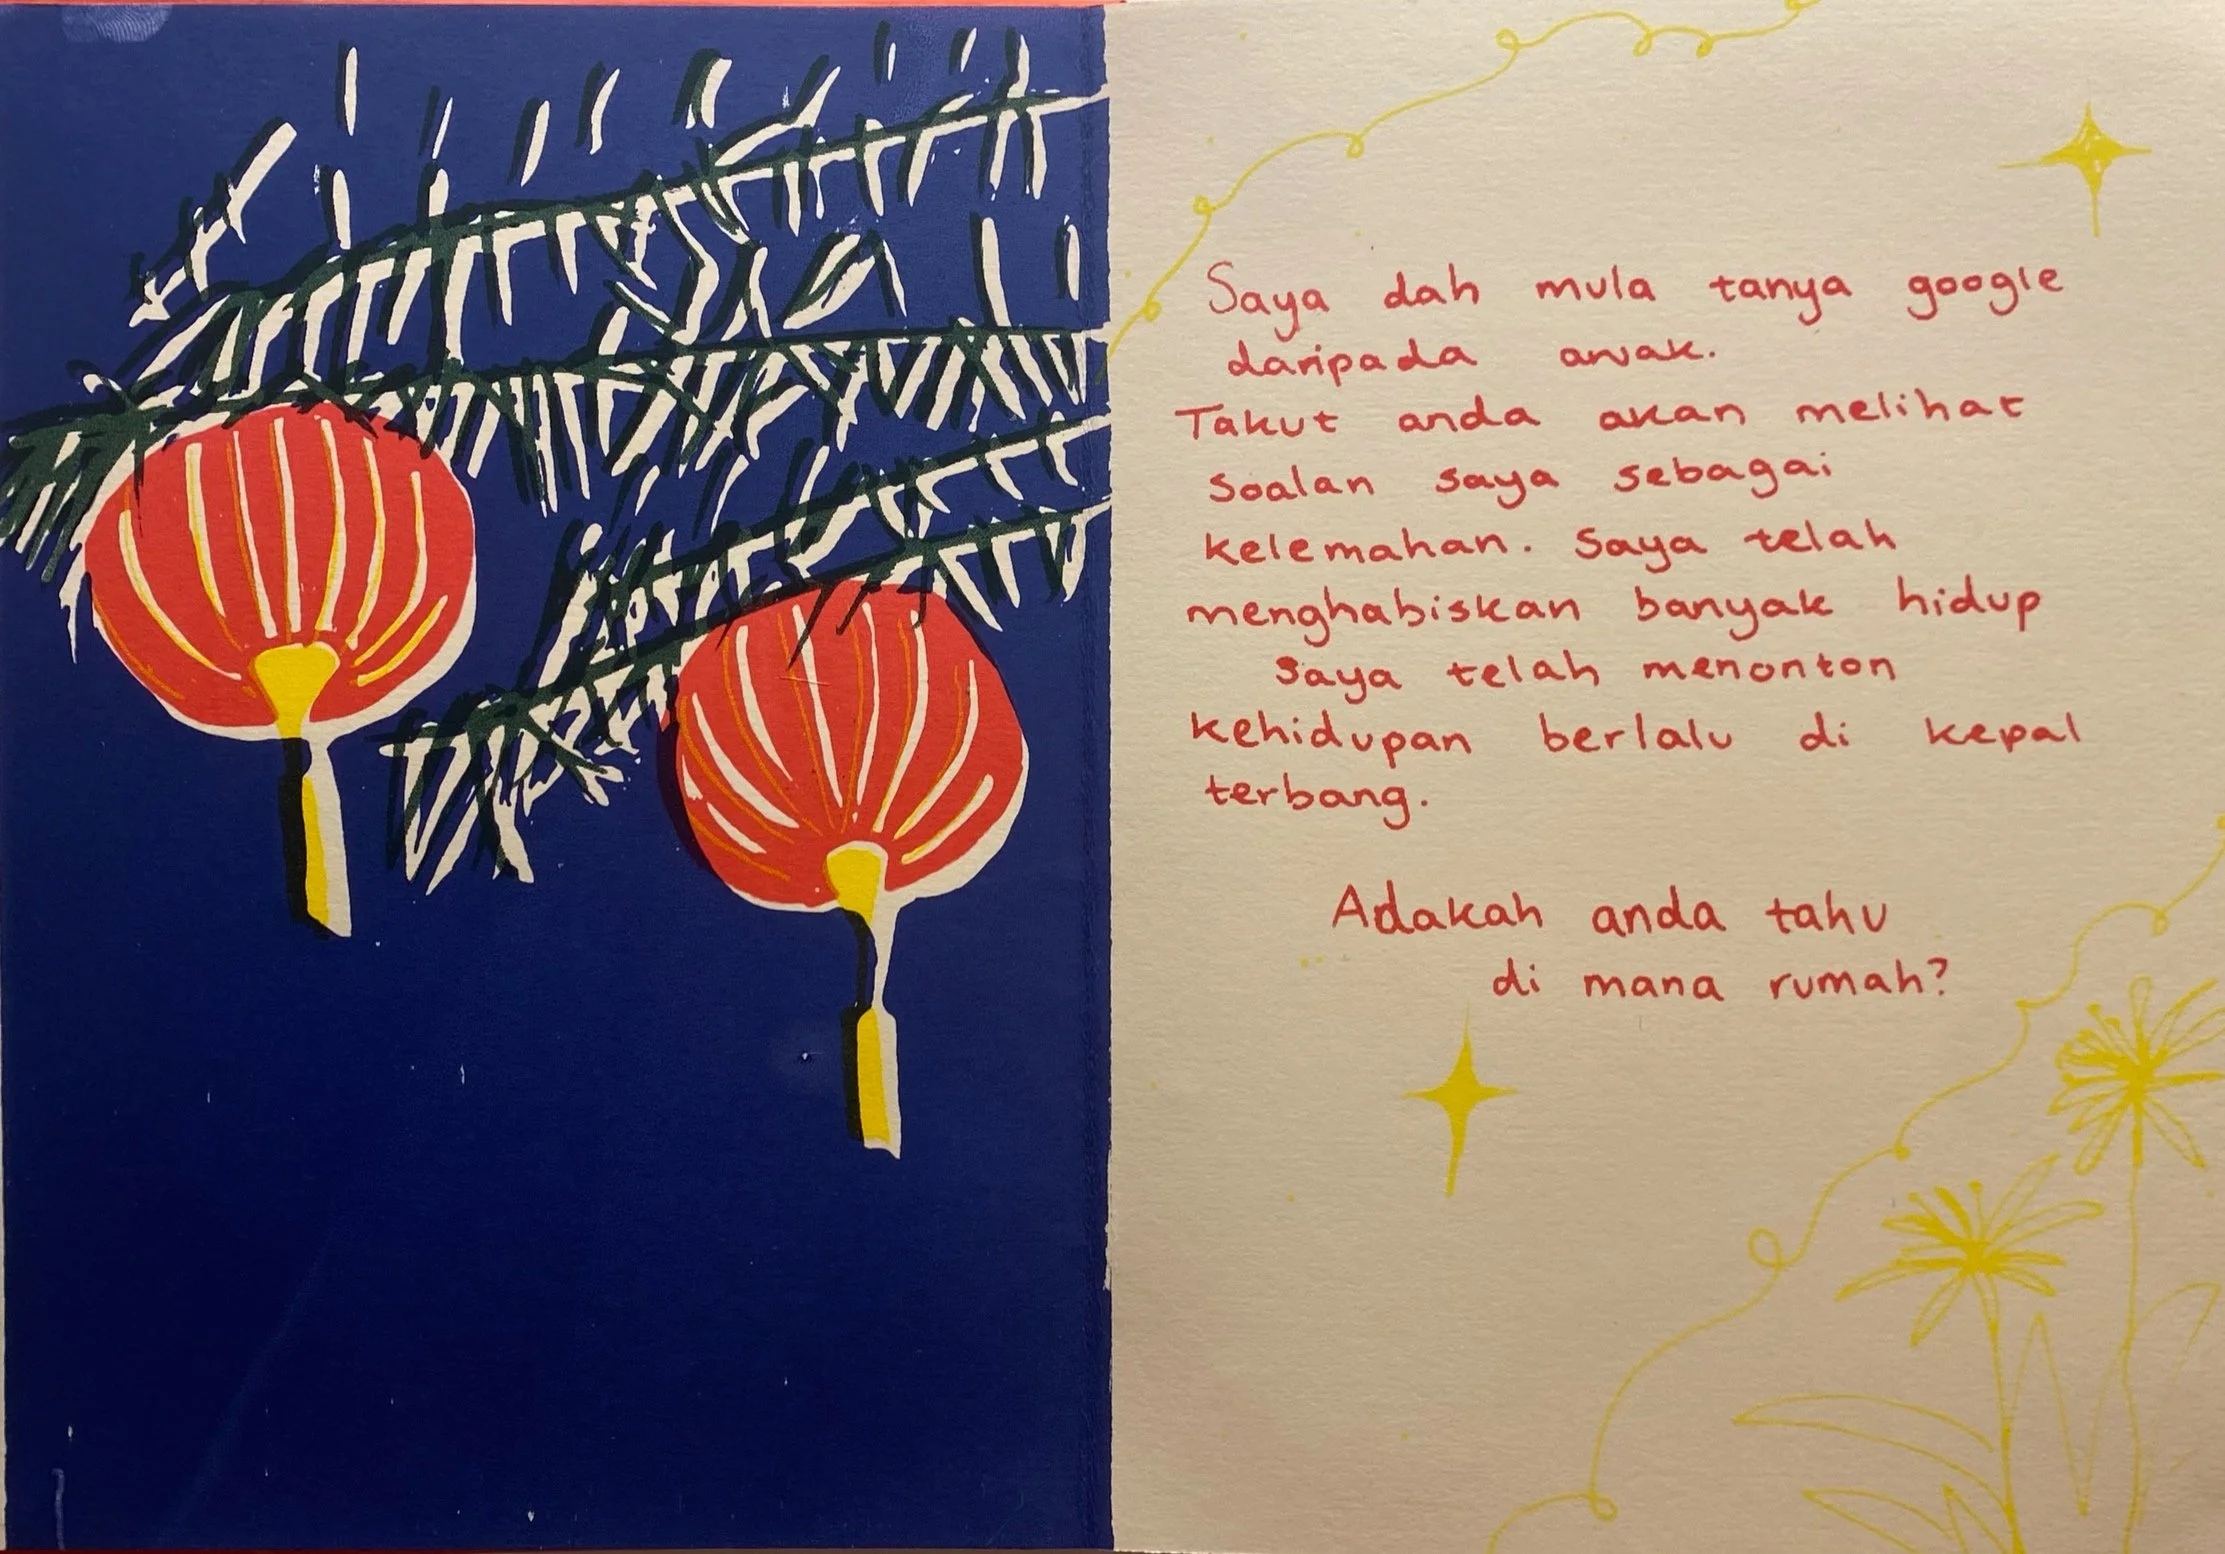 Saya dah mula tanya google
daripada awak.
Takut anda akan melihat
soalan saya sebagai
kelemahan. Saya telah
menghabiskan banyak hidup
saya telah menonton
kehidupan berlalu di kepal
terbang.
Adakah anda tahu
di mana rumah?